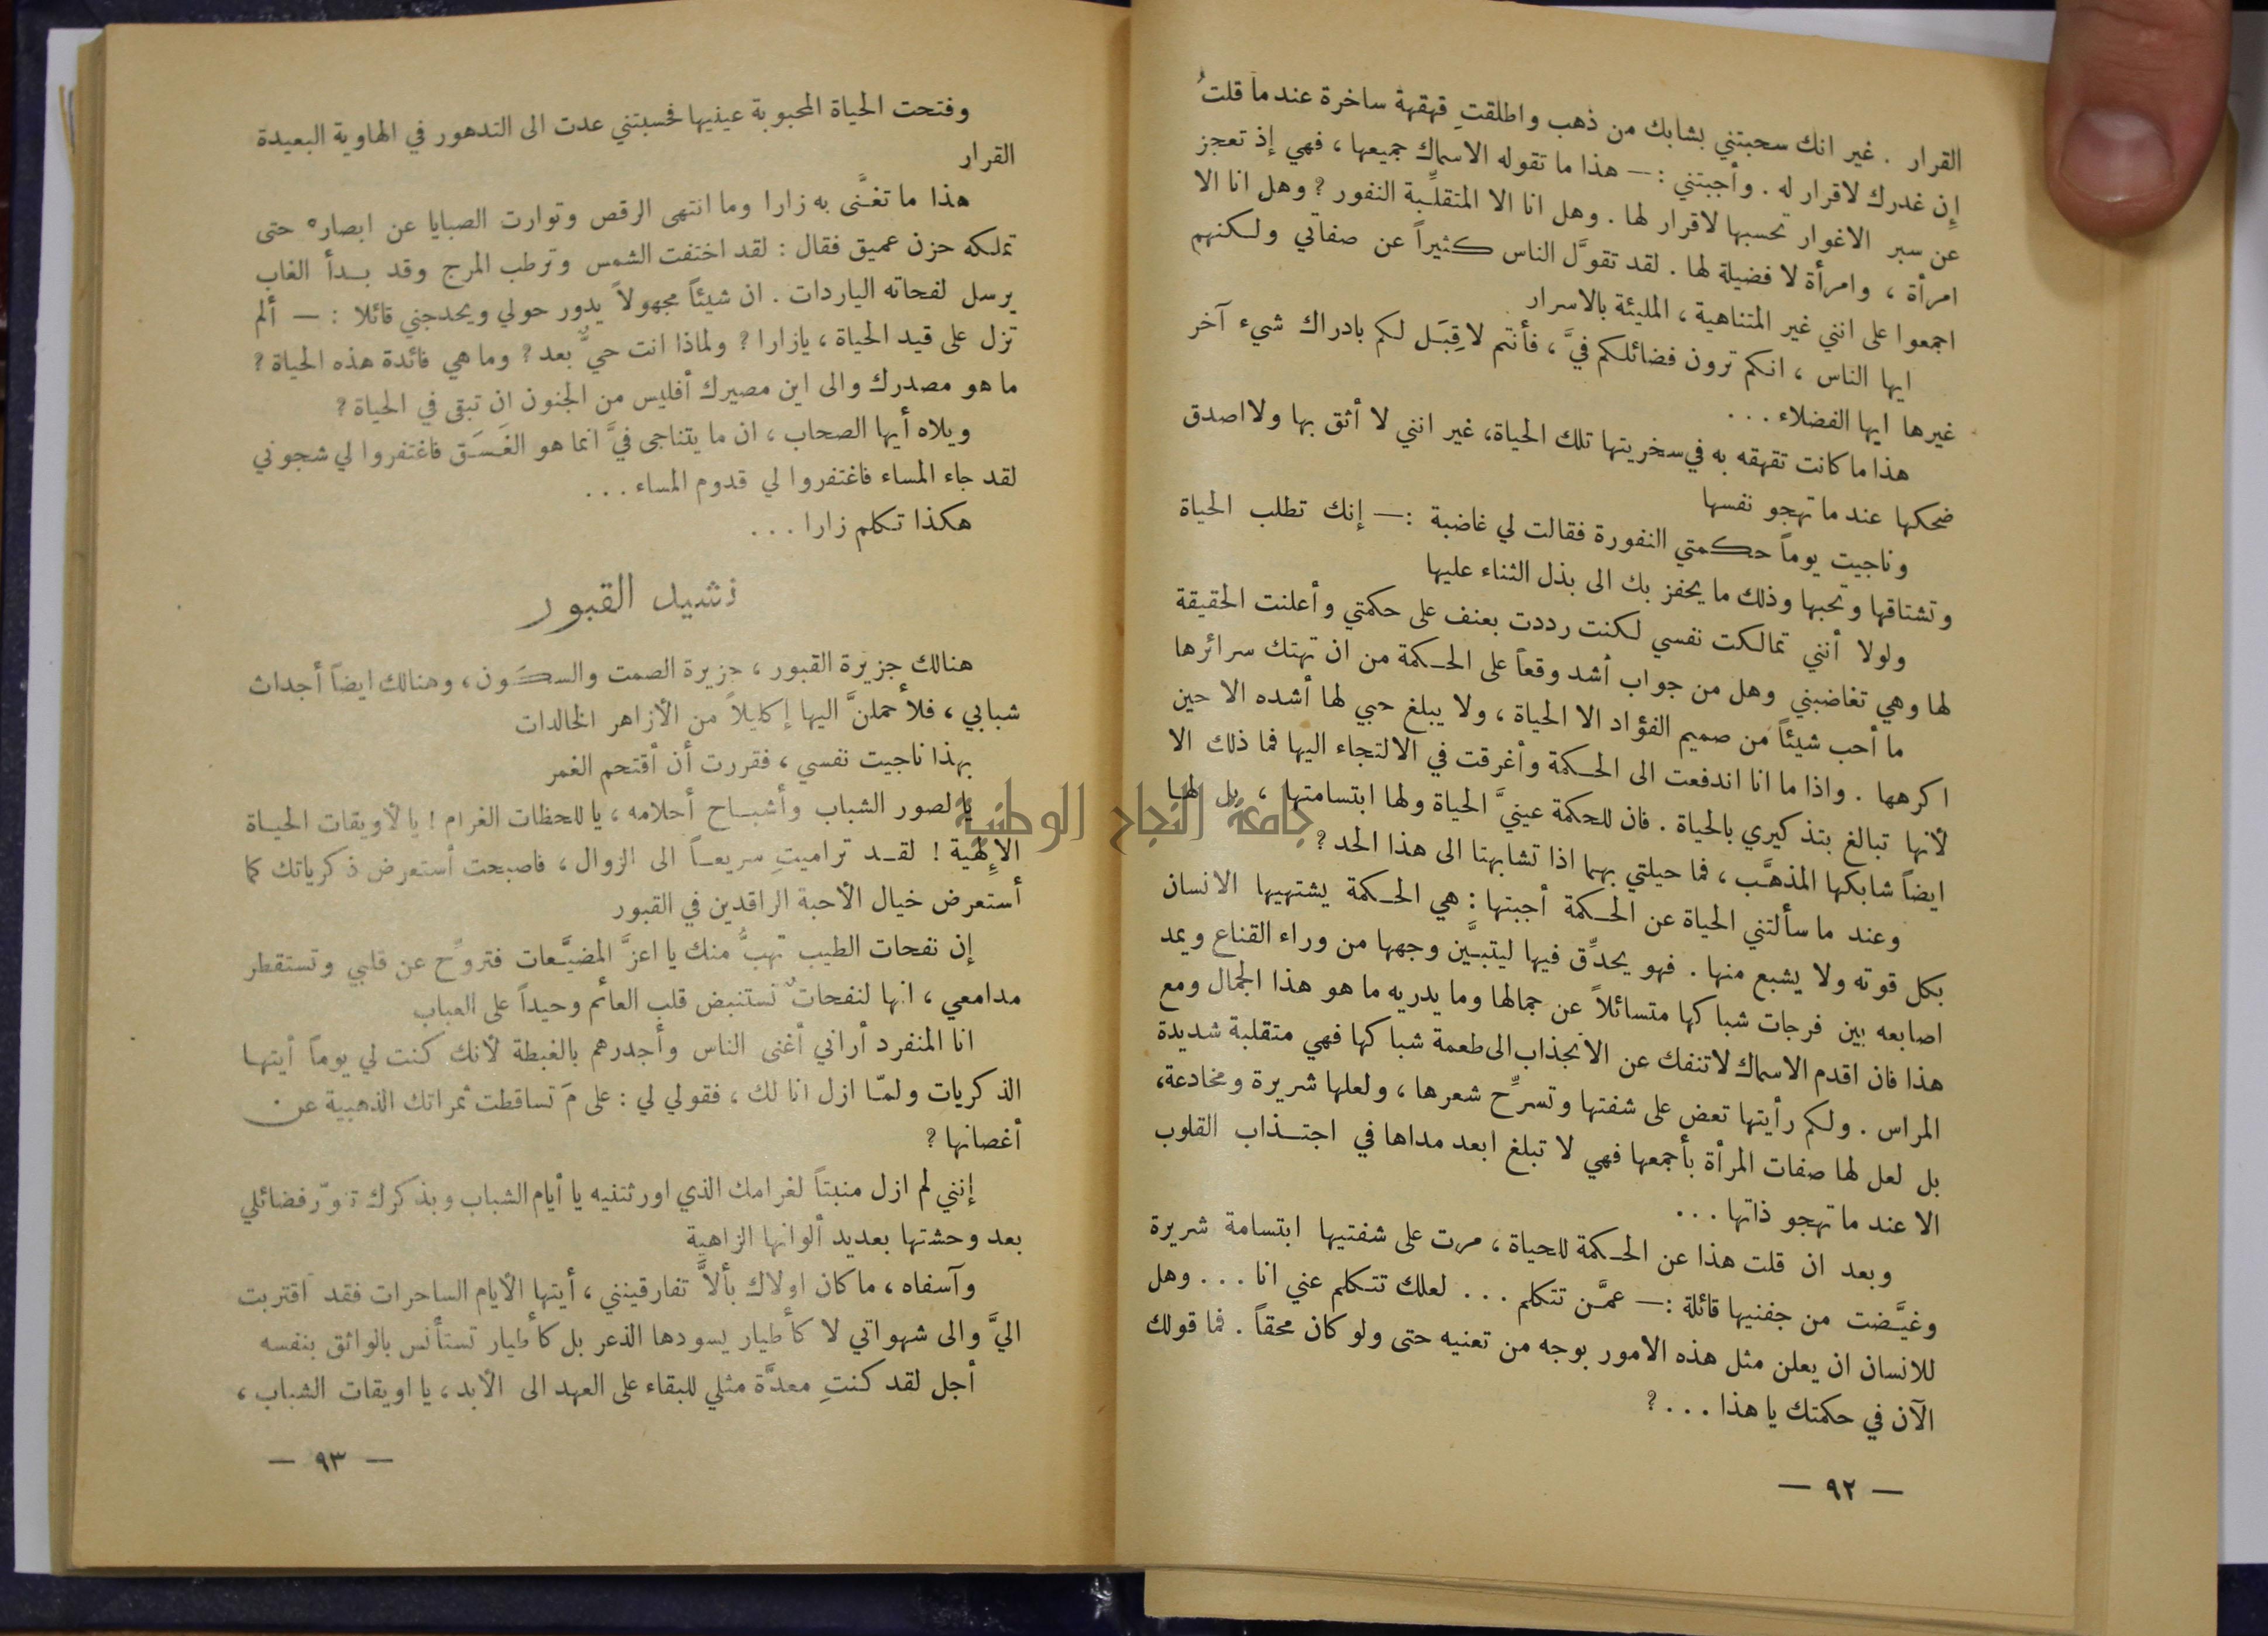 القرار . غير انك سحبتني بشابك من ذهب واطلقتِ قهقهة ساخرة عندما قلتُ
إِن غدرك لاقرار له . وأجبتني : — هذا ما تقوله الاسماك جميعها ، فهي إذ تعجز
عن سبر الاغوار تحسبها لاقرار لها . وهل انا الا المتقلِّبة النفور ? وهل انا الا
امرأة ، وامرأة لا فضيلة لها . لقد تقوَّل الناس كثيراً عن صفاتي ولكنهم
اجمعوا على انني غير المتناهية ، المليئة بالاسرار
ايها الناس ، انكم ترون فضائلكم فيَّ ، فأنتم لاقِبَل لكم بادراك شيء آخر
غيرها ايها الفضلاء . . .
هذا ما كانت تقهقه به في سخريتها تلك الحياة، غير انني لا أثق بها ولا اصدق
ضحكها عند ما تهجو نفسها
وناجيت يوماً حكمتي النفورة فقالت لي غاضبة : — إنك تطلب الحياة
وتشتاقها وتحبها وذلك ما يحفز بك الى بذل الثناء عليها
ولولا أنني تمالكت نفسي لكنت رددت بعنف على حكمتي وأعلنت الحقيقة
لها وهي تغاضبني وهل من جواب أشد وقعاً على الحكمة من ان تهتك سرائرها
ما أحب شيئاً من صميم الفؤاد الا الحياة ، ولا يبلغ حبي لها أشده الا حين
اكرهها . واذا ما انا اندفعت الى الحكمة وأغرقت في الالتجاء اليها فما ذلك الا
لأنها تبالغ بتذكيري بالحياة . فان للحكمة عينيَّ الحياة ولها ابتسامتها ، بل لها
ايضاً شابكها المذهَّب ، فما حيلتي بهما اذا تشابهتا الى هذا الحد ?
وعند ما سألتني الحياة عن الحكمة أجبتها : هي الحكمة يشتهيها الانسان
بكل قوته ولا يشبع منها . فهو يحدِّق فيها ليتبيَّن وجهها من وراء القناع ويمد
اصابعه بين فرجات شباكها متسائلاً عن جمالها وما يدريه ما هو هذا الجمال ومع
هذا فان اقدم الاسماك لاتنفك عن الانجذاب الى طعمة شباكها فهي متقلبة شديدة
المراس . ولكم رأيتها تعض على شفتها وتسرِّح شعرها ، ولعلها شريرة ومخادعة،
بل لعل لها صفات المرأة بأجمعها فهي لا تبلغ ابعد مداها في اجتذاب القلوب
الا عند ما تهجو ذاتها . . .
وبعد ان قلت هذا عن الحكمة للحياة ، مرت على شفتيها ابتسامة شريرة
وغيَّضت من جفنيها قائلة : — عمَّن تتكلم . . . لعلك تتكلم عني انا . . . وهل
للانسان ان يعلن مثل هذه الامور بوجه من تعنيه حتى ولو كان محقاً . فما قولك
الآن في حكمتك يا هذا . . . ?
— ٩٢ —
وفتحت الحياة المحبوبة عينيها فحسبتني عدت الى التدهور في الهاوية البعيدة
القرار
هذا ما تغنَّى به زارا وما انتهى الرقص وتوارت الصبايا عن ابصاره حتى
تملكه حزن عميق فقال : لقد اختفت الشمس وترطب المرج وقد بدأ الغاب
يرسل لفحاته الياردات . ان شيئاً مجهولاً يدور حولي ويحدجني قائلا : — ألم
تزل على قيد الحياة ، يازارا ? ولماذا انت حيٌّ بعد ? وما هي فائدة هذه الحياة ?
ما هو مصدرك والى اين مصيرك أفليس من الجنون ان تبقى في الحياة ?
ويلاه أيها الصحاب ، ان ما يتناجى فيَّ انما هو الغَسَق فاغتفروا لي شجوني
لقد جاء المساء فاغتفروا لي قدوم المساء . . .
هكذا تكلم زارا . . .
نشيد القبور
هنالك جزيرة القبور ، جزيرة الصمت والسكون ، وهنالك ايضاً أجداث
شبابي ، فلأحملنَّ اليها إكليلاً من الأزاهر الخالدات
بهذا ناجيت نفسي ، فقررت أن أقتحم الغمر
يا لصور الشباب وأشباح أحلامه ، يا للحظات الغرام ! يا لأويقات الحياة
الإِلهية ! لقد تراميتِ سريعاً الى الزوال ، فاصبحت أستعرض ذكرياتك كما
أستعرض خيال الأحبة الراقدين في القبور
إن نفحات الطيب تهبُّ منك يا اعزَّ المضيَّعات فتروِّح عن قلبي وتستقطر
مدامعي ، انها لنفحات تستنبض قلب العائم وحيداً على العباب
انا المنفرد أراني أغنى الناس وأجدرهم بالغبطة لأنك كنت لي يوماً أيتها
الذكريات ولمّا ازل انا لك ، فقولي لي : على مَ تساقطت ثمراتك الذهبية عن
أغصانها ?
إنني لم ازل منبتاً لغرامك الذي اورثتنيه يا أيام الشباب وبذكرك تنوّر فضائلي
بعد وحشتها بعديد ألوانها الزاهية
وآسفاه ، ما كان اولاك بألاَّ تفارقينني ، أيتها الأيام الساحرات فقد اقتربت
اليَّ والى شهواتي لا كأطيار يسودها الذعر بل كأطيار تستأنس بالواثق بنفسه
أجل لقد كنتِ معدَّة مثلي للبقاء على العهد الى الأبد ، يا اويقات الشباب ،
— ٩٣ —
جامعة النجاح الوطنية